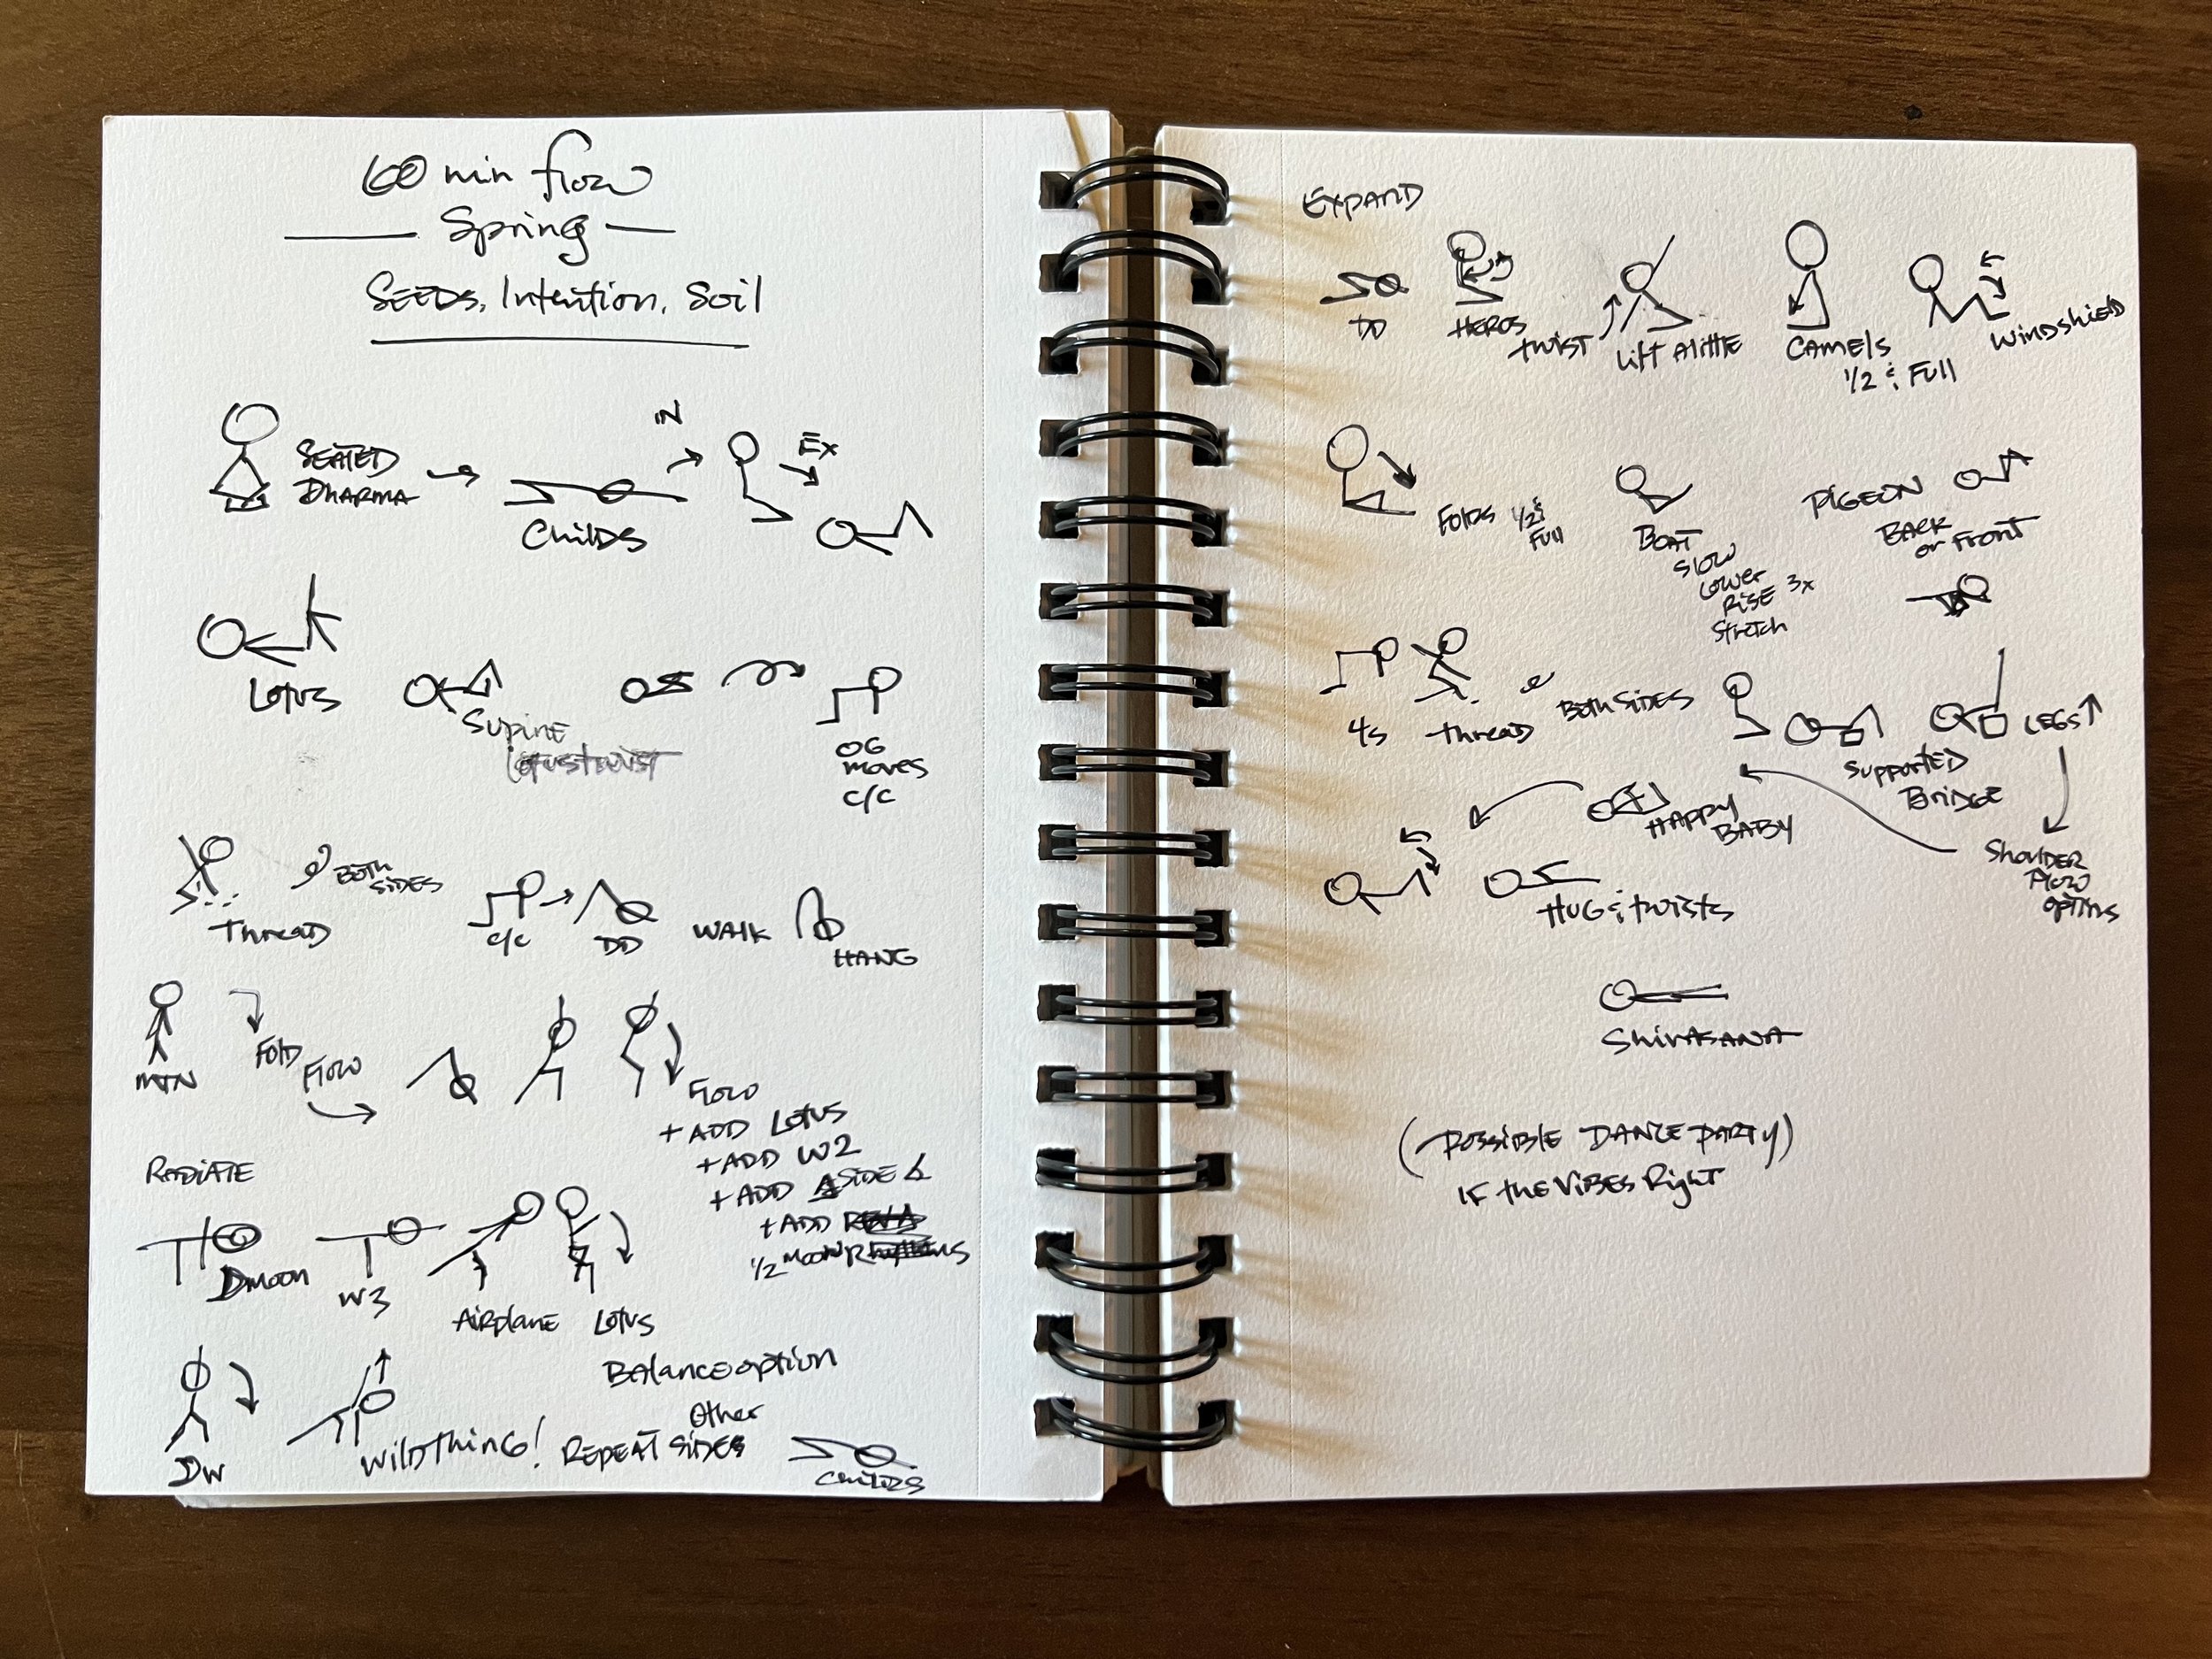 60 min flow
Spring
SEEDS, Intention, Soil
SEATED
DHARMA
CHILDS
IN
EX
LOTUS
SUPINE
Lotus twist
OG
moves
C/C
Thread
BOTH
SIDES
C/C
DD
WALK
HANG
MTN
FOLD
FLOW
FLOW
+ ADD LOTUS
+ ADD W2
+ ADD SIDE
+ ADD
1/2 MOON
RADIATE
DMOON
W3
AIRPLANE
LOTUS
Balance option
DW
WILD THING!
REPEAT Other SIDES
CHILDS
EXPAND
DD
HEROS
TWIST
Lift A little
CAMELS
1/2 & FULL
WINDSHIELD
FOLDS 1/2 &
FULL
BOAT
SLOW
LOWER
RISE 3x
Stretch
PIGEON
BACK
or FRONT
4s
Thread
BOTH SIDES
SUPPORTED
BRIDGE
LEGS
SHOULDER
PLOW
OPTINS
HAPPY
BABY
HUG & TWISTS
SHIVASANA
(POSSIBLE DANCE PARTY)
IF the VIBES Right